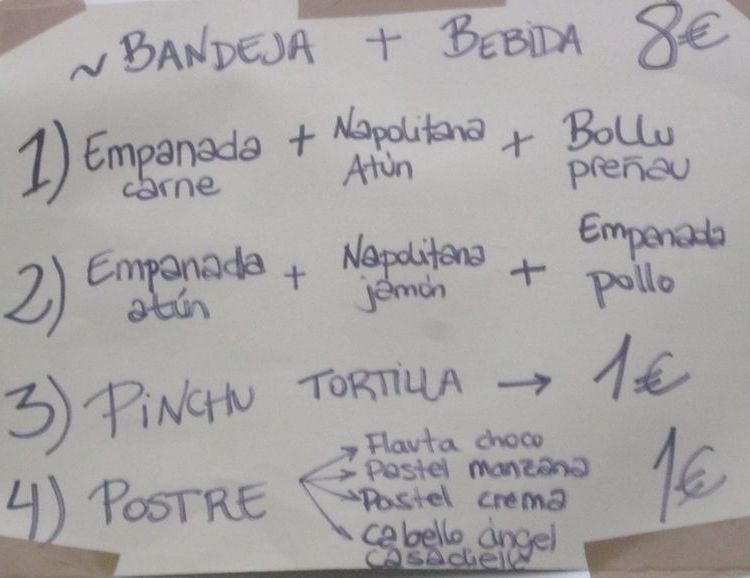 ~ BANDEJA + BEBIDA 8€
1) Empanada + Napolitana + Bollu
carne Atún preñau
2) Empanada + Napolitana + Empanada
atún jamón pollo
3) PINCHU TORTILLA → 1€
4) POSTRE → Flauta choco 1€
→ Pastel manzana
→ Pastel crema
→ cabello ángel
casadielle